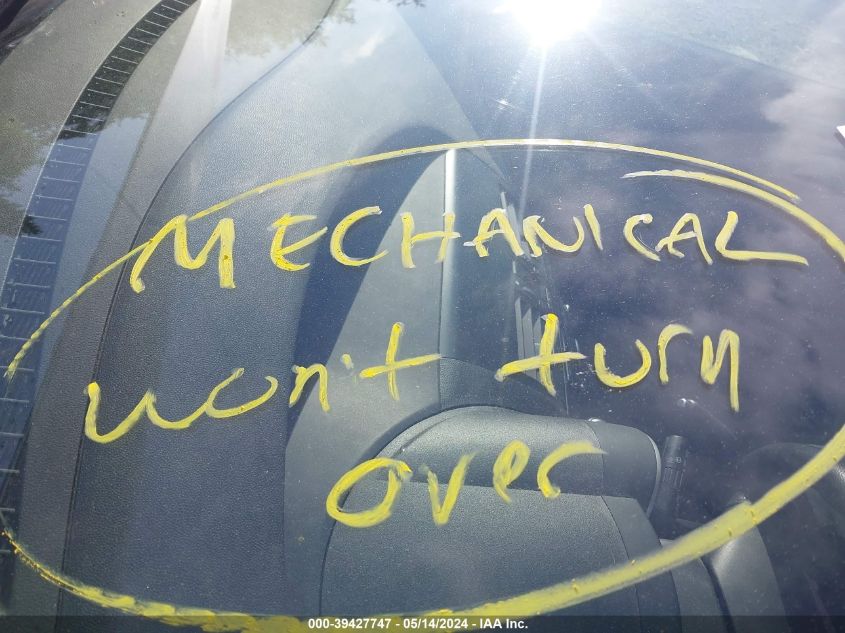 MECHANICAL
won't turn
over
000-39427747 - 05/14/2024 - IAA Inc.